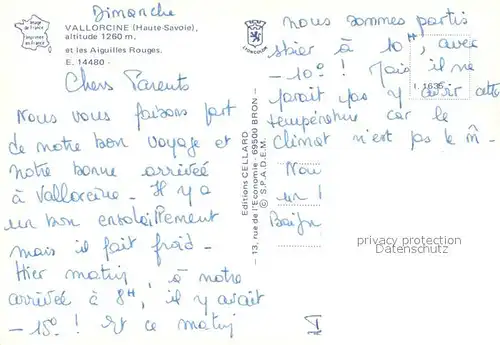 Dimanche
VALLORCINE (Haute-Savoie),
altitude 1260 m.
et les Aiguilles Rouges.
E. 14480 -
Image de France
Imprimé en France
Chers Parents
Nous vous faisons part
de notre bon voyage et
notre bonne arrivée
à Vallorcine - Il y a
un bon ensoleillement
mais il fait froid -
Hier matin, à notre
arrivée à 8H, il y avait
- 15° ! Et ce matin
LYONCOLOR
Editions CELLARD
- 13, rue de l'Economie - 69500 BRON -
© S.P.A.D.E.M.
nous sommes partis
skier à 10H, avec
- 10° ! Mais il ne
parait pas y avoir cette
température car le
climat n'est pas le m̂ -
I. 1635
Nou
un !
privacy protection
Datenschutz